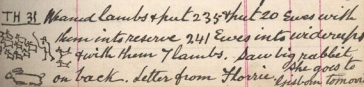 TH 31 Weaned lambs & put 235 & put 20 Ewes with
them into reserve 241 Ewes into widerups
& with them 7 lambs. Saw big rabbit
on back. Letter from Thorrie, she goes to
Gisborn tomorrow